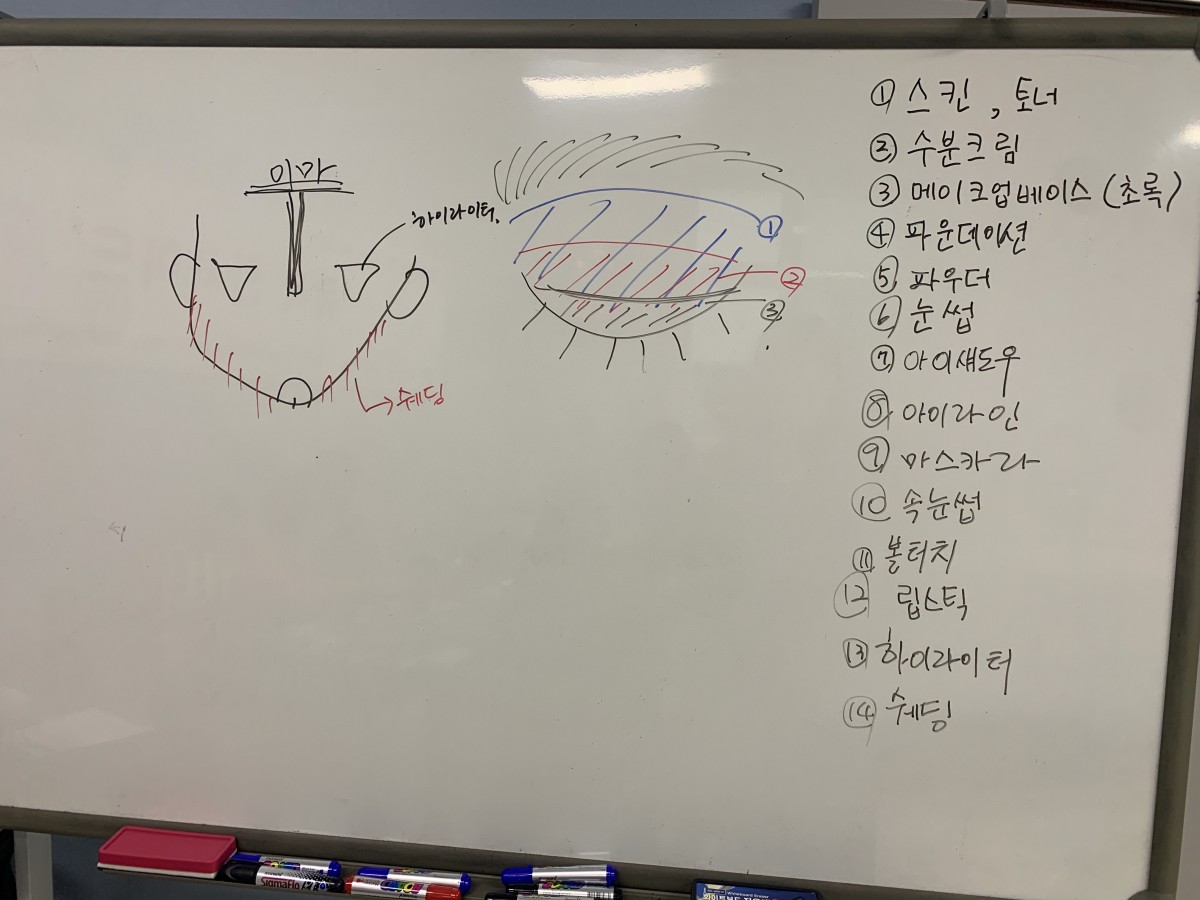 이마
하이라이터.
쉐딩
①
②
③
① 스킨, 토너
② 수분크림
③ 메이크업베이스 (초록)
④ 파운데이션
⑤ 파우더
⑥ 눈썹
⑦ 아이섀도우
⑧ 아이라인
⑨ 마스카라
⑩ 속눈썹
⑪ 볼터치
⑫ 립스틱
⑬ 하이라이터
⑭ 쉐딩
SigmaFlo